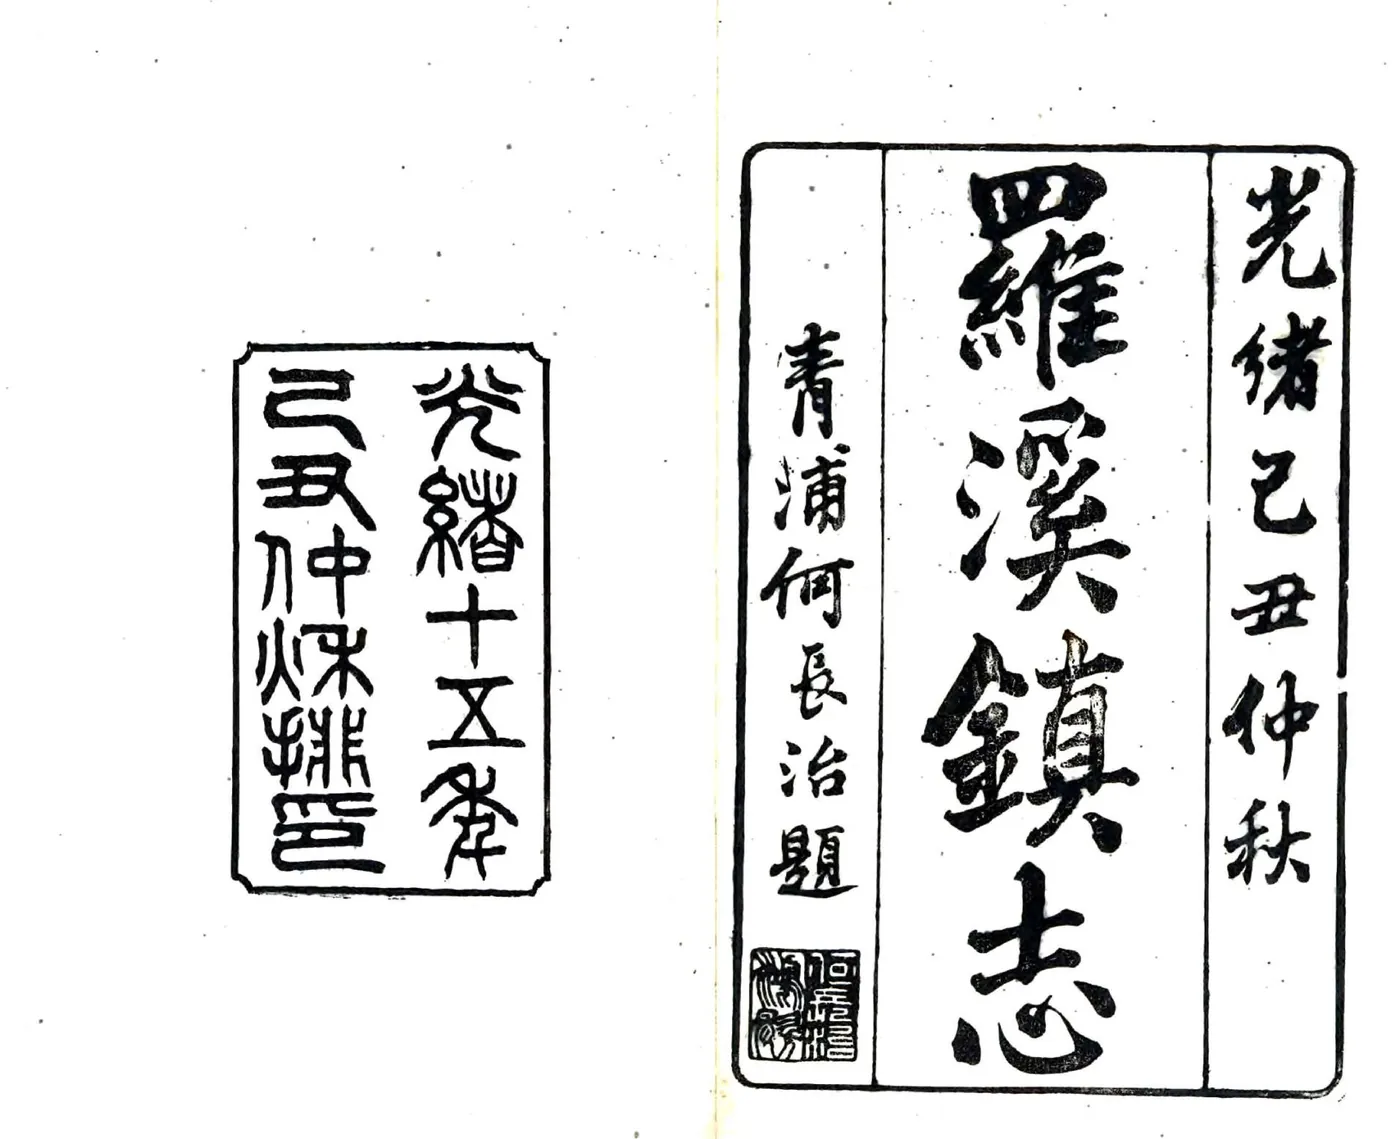 光緒己丑仲秋
羅溪鎮志
青浦何長治題
光緒十五年
己丑仲秌排印